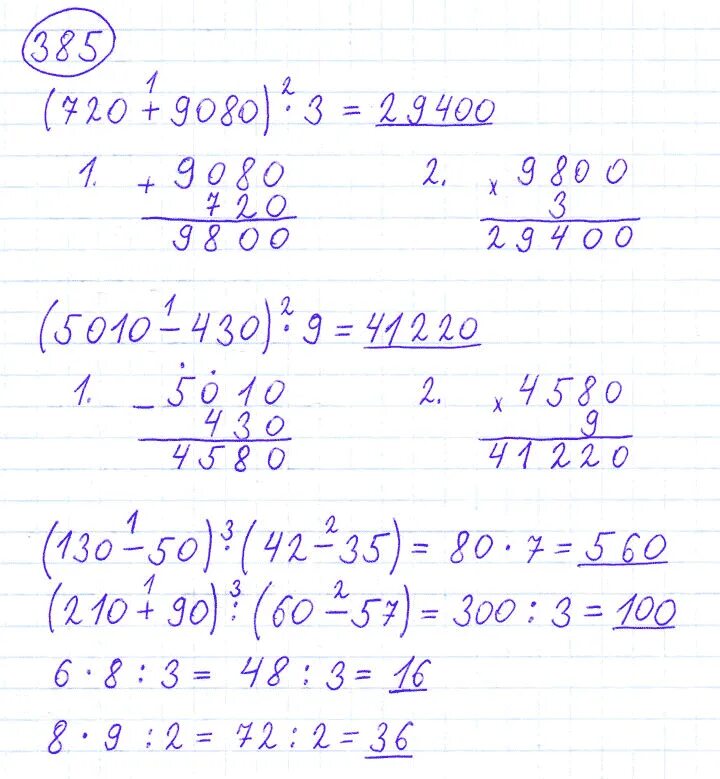 385
(720 + 9080) · 3 = 29400
1. + 9080
720
9800
2. x 9800
3
29400
(5010 - 430) · 9 = 41220
1. - 5010
430
4580
2. x 4580
9
41220
(130 - 50) · (42 - 35) = 80 · 7 = 560
(210 + 90) : (60 - 57) = 300 : 3 = 100
6 · 8 : 3 = 48 : 3 = 16
8 · 9 : 2 = 72 : 2 = 36